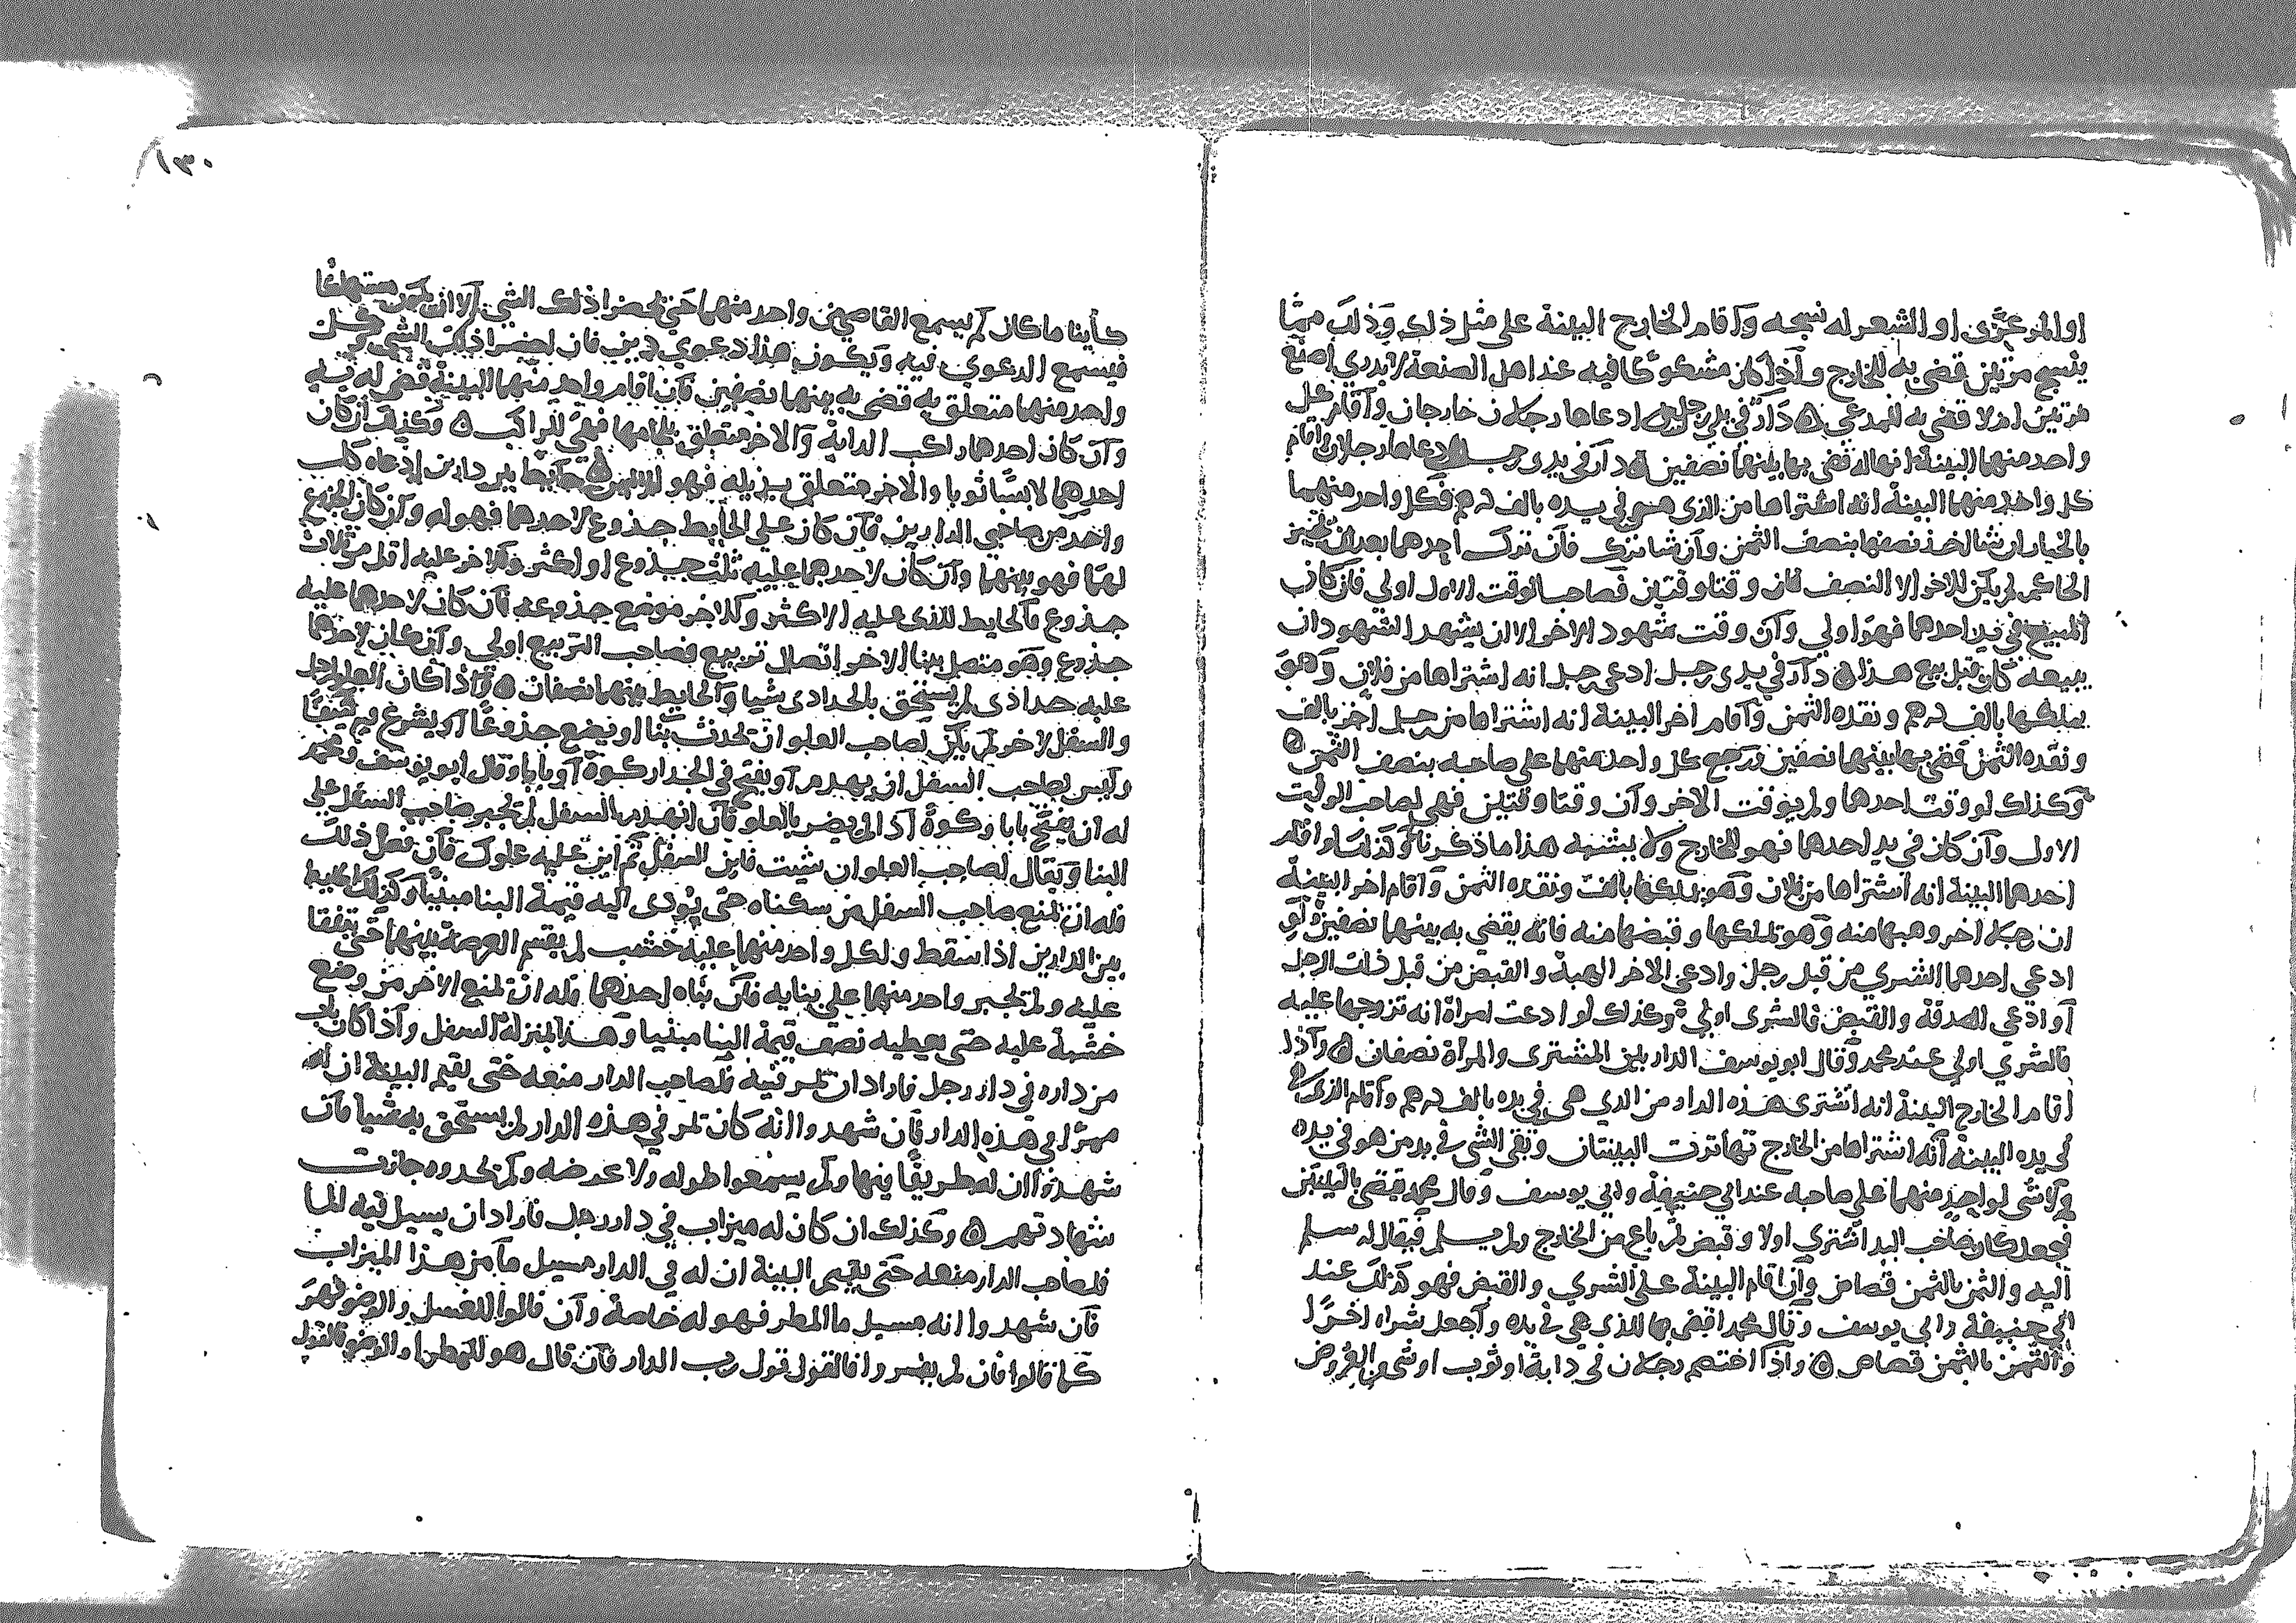 او المرعزى او الشعر له نسجه واقام الخارج البينة على مثل ذلك وذلك مما
ينسج مرتين قضى به للخارج واذا كان مشكوكا فيه عند اهل الصنعة لا يدري اصنع
مرتين ام لا قضى به للمدعي ه دار في يدي رجلين ادعاها رجلان خارجان واقام كل
واحد منهما البينة انها له قضى بها بينهما نصفين ه دار في يدي رجل ادعاها رجلان اقام
كل واحد منهما البينة انه اشتراها من الذى هي في يده بالف درهم فكل واحد منهما
بالخيار ان شا اخذ نصفها بنصف الثمن وان شا ترك فان ترك احدهما بعد ان تخير
الحاكم لم يكن للاخر الا النصف فان وقتا وقتين فصاحب الوقت الاول اولى فان كان
المبيع في يد احدهما فهو اولي وان وقت شهود الاخر الا ان يشهد الشهود ان
بيعه كان قبل بيع هذا ه دار في يدى رجل ادعى رجل انه اشتراها من فلان وهو
يملكها بالف درهم ونقده الثمن واقام اخر البينة انه اشتراها من رجل اخر بالف
ونقده الثمن قضى بها بينهما نصفين ورجع كل واحد منهما على صاحبه بنصف الثمن ه
وكذلك لو وقت احدهما ولم يوقت الاخر وان وقتا وقتين فهي لصاحب الوقت
الاول وان كان في يد احدهما فهو للخارج ولا يشبه هذا ما ذكرنا وكذلك لو اقام
احدهما البينة انه اشتراها من فلان وهو يملكها بالف ونقده الثمن واقام اخر البينة
ان رجلا اخر وهبها منه وهو يملكها وقبضها منه فانه يقضى به بينهما نصفين ولو
ادعى احدهما الشرى من قبل رجل وادعى الاخر الهبة والقبض من قبل ذلك الرجل
او ادعى الصدقة والقبض فالشرى اولى وكذلك لو ادعت امراة انه تزوجها عليه
فالشري اولي عند محمد وقال ابو يوسف الدار بين المشترى والمراة نصفان ه واذا
اقام الخارج البينة انه اشترى هذه الدار من الذي هي في يده بالف درهم واقام الذي هي
في يده البينة انه اشتراها من الخارج تهاترت البينتان وبقى الشى في يد من هو في يده
ولا شى لواحد منهما على صاحبه عند ابي حنيفة وابي يوسف وقال محمد يقضى بالبينتين
فيجعل كان صاحب اليد اشترى اولا وقبض ثم باع من الخارج ولم يسلم فيقال له سلم
اليه والثمن بالثمن قصاص وان اقام البينة على الشري والقبض فهو كذلك عند
ابي حنيفة وابي يوسف وقال محمد اقضي بها للذي هي في يده واجعل شراه اخرا
والثمن بالثمن قصاص ه واذا اختصم رجلان في دابة او ثوب او شى من العروض
١٣٠
كاينا ما كان لم يسمع القاضي من واحد منهما حتى يحضرا ذلك الشي الا ان يكون مستهلكا
فيسمع الدعوي فيه ويكون هذا دعوي دين فان احضرا ذلك الشى وكل
واحد منهما متعلق به قضى به بينهما نصفين فان اقام واحد منهما البينة قضى له به
وان كان احدهما راكب الدابة والاخر متعلق بلجامها فهي للراكب ه وكذلك ان كان
احدهما لابسا ثوبا والاخر متعلق بذيله فهو للابس ه حايط بين دارين ادعاه كل
واحد من صاحبي الدارين فان كان على الحايط جذوع لاحدهما فهو له وان كان الجذوع
لهما فهو بينهما وان كان لاحدهما عليه ثلث جذوع او اكثر وللاخر عليه اقل من ثلاث
جذوع فالحايط للذى عليه الاكثر وللاخر موضع جذوعه فان كان لاحدهما عليه
جذوع وهو متصل ببنا الاخر اتصال تربيع فصاحب التربيع اولى وان كان لاحدهما
عليه حداذى لم يستحق بالحدادى شيا والحايط بينهما نصفان ه واذا كان العلو لرجل
والسفل لاخر لم يكن لصاحب العلو ان يحدث بنا او يضع جذوعا او يشرع فيه كنيفا
وليس لصاحب السفل ان يهدم او يفتح في الجدار كوة او بابا وقال ابو يوسف ومحمد
له ان يفتح بابا وكوة اذا لم يضر بالعلو فان انهدم السفل لم يجبر صاحب السفل على
البنا ويقال لصاحب العلو ان شيت فابن السفل ثم ابن عليه علوك فان فعل ذلك
فله ان يمنع صاحب السفل من سكناه حتى يودى اليه قيمة البنا مبنيا وكذلك الحايط
بين الدارين اذا سقط ولكل واحد منهما عليه خشب لم يقسم العرصة بينهما حتى يتفقا
عليه ولم يجبر واحد منهما على بنايه فان بناه احدهما فله ان يمنع الاخر من وضع
خشبة عليه حتى يعطيه نصف قيمة البنا مبنيا وهذا بمنزلة السفل واذا كان باب
من داره في دار رجل فاراد ان يمر فيه فلصاحب الدار منعه حتى يقيم البينة ان له
ممرا في هذه الدار فان شهدوا انه كان يمر في هذه الدار لم يستحق به شيا فان
شهدوا ان له طريقا فيها ولم يسمعوا طوله ولا عرضه ولم يحدوه جازت
شهادتهم ه وكذلك ان كان له ميزاب في دار رجل فاراد ان يسيل فيه الما
فلصاحب الدار منعه حتى يقيم البينة ان له في الدار مسيل ما من هذا الميزاب
فان شهدوا انه مسيل ما المطر فهو له خاصة وان قالوا للغسل والوضو فهو
كما قالوا فان لم يفسروا فالقول قول رب الدار فان قال هو للمطر او الوضو فالقول